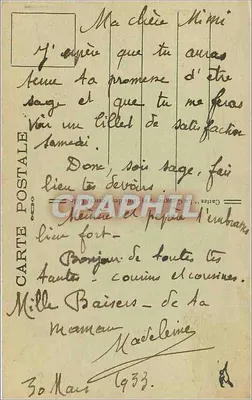 Ma chère Mimi
J'espère que tu auras
tenu ta promesse d'être
sage et que tu me feras
voir un billet de satisfaction
samedi.
Donc, sois sage, fais
bien tes devoirs.
et t'embrasse
bien fort-
Bonjour de toutes tes
tantes - cousins et cousines.
Mille Baisers - de ta
maman
Madeleine
30 Mars 1933.
CARTE POSTALE
CPAPHIL.com